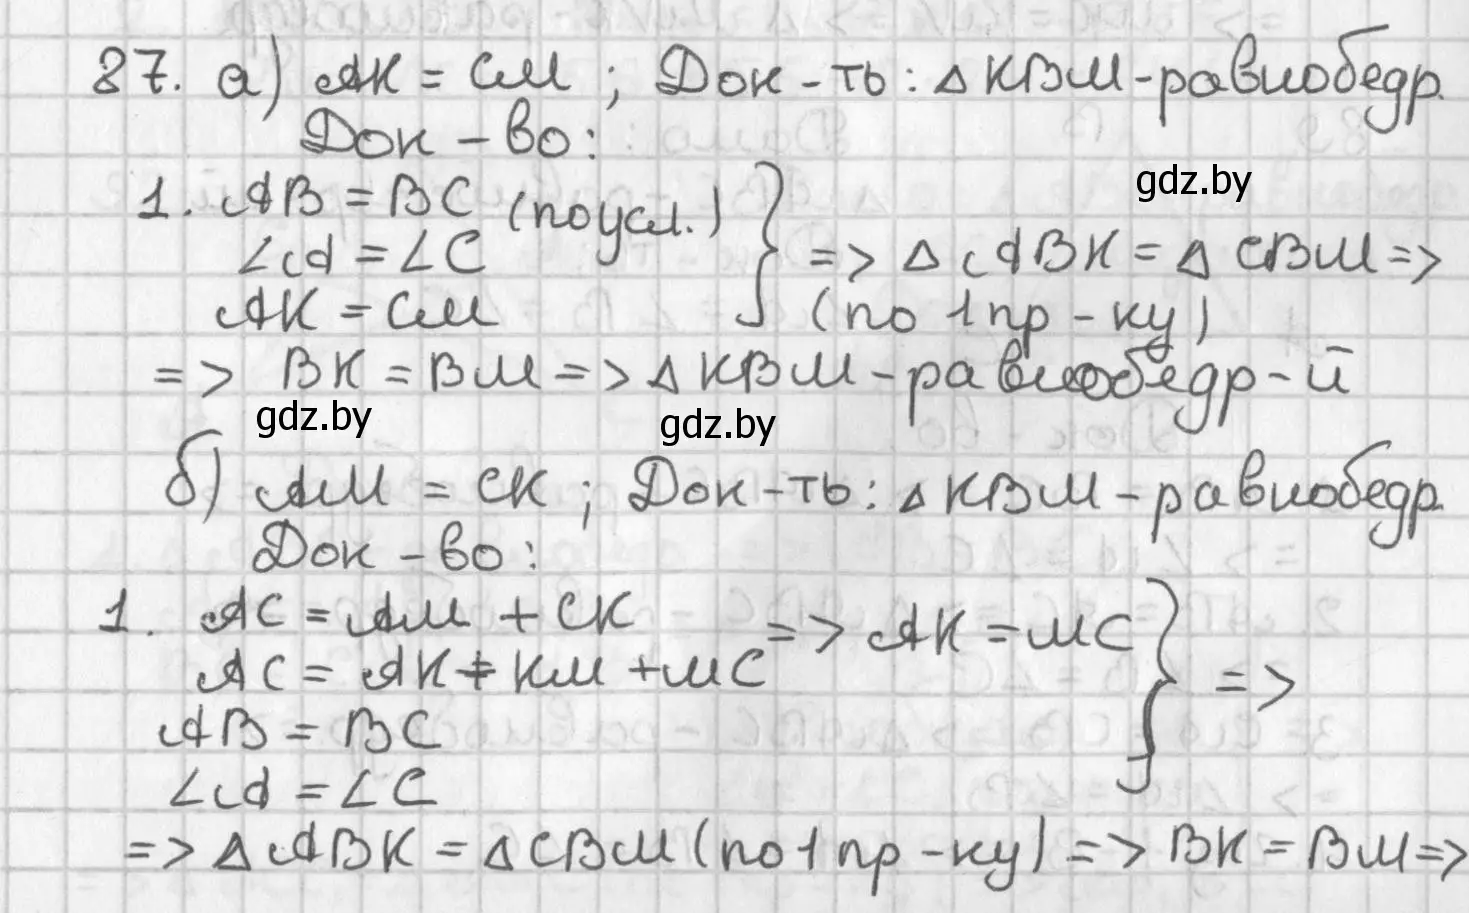 87. а) AK = CM ; Док-ть: △ KBM - равнобедр.
Док-во:
1. AB = BC (по усл.)
∠A = ∠C
AK = CM
=> △ ABK = △ CBM =>
(по 1 пр-ку)
=> BK = BM => △ KBM - равнобедр-й
б) AM = CK ; Док-ть: △ KBM - равнобедр.
Док-во:
1. AC = AM + CK
AC = AK + KM + MC
=> AK = MC
AB = BC
∠A = ∠C
=>
=> △ ABK = △ CBM (по 1 пр-ку) => BK = BM =>
gdz.by
gdz.by
gdz.by